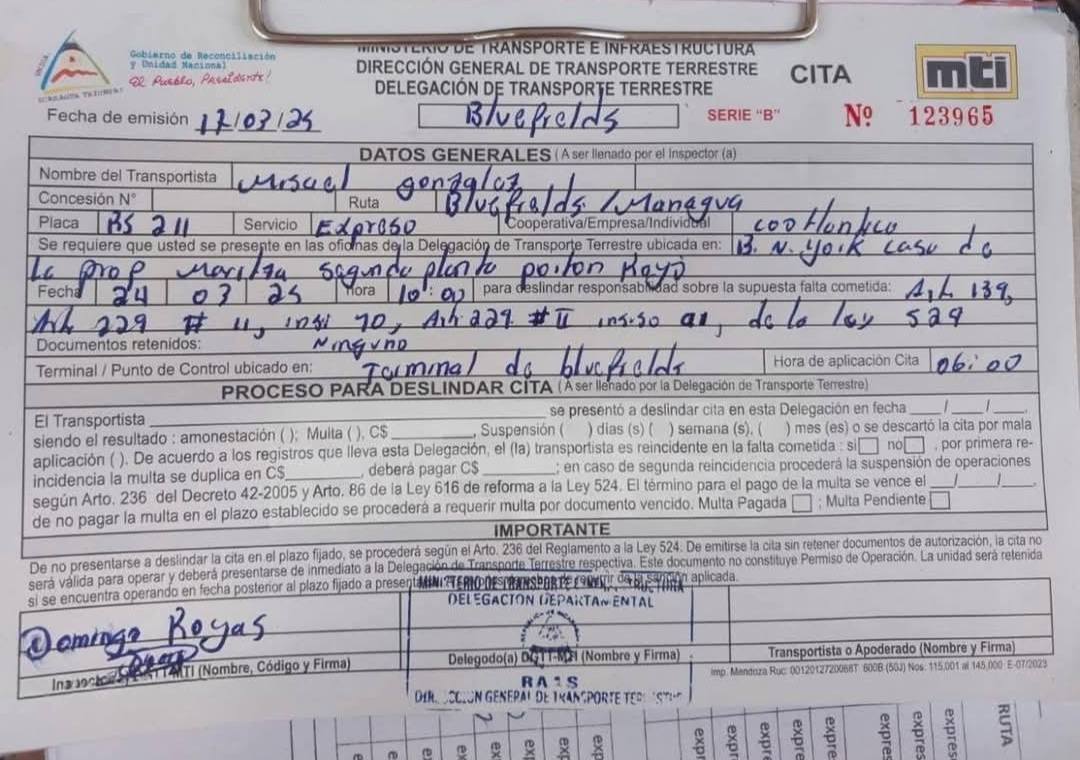 Gobierno de Reconciliación
y Unidad Nacional
El Pueblo, Presidente!
MINISTERIO DE TRANSPORTE E INFRAESTRUCTURA
DIRECCIÓN GENERAL DE TRANSPORTE TERRESTRE
DELEGACIÓN DE TRANSPORTE TERRESTRE
CITA
mti
Fecha de emisión 17/03/25
Bluefields
SERIE "B"
Nº 123965
DATOS GENERALES (A ser llenado por el Inspector (a)
Nombre del Transportista Misael gonzalez
Concesión N° Ruta Bluefields/Managua
Placa RS 211 Servicio Expreso Cooperativa/Empresa/Individual
Se requiere que usted se presente en las oficinas de la Delegación de Transporte Terrestre ubicada en: B. N. york casa de
la prof Maritza segunda planta porton Rojo
Fecha 24 03 25 Hora 10:00 para deslindar responsabilidad sobre la supuesta falta cometida: Art 139,
Art 229 # 11, 70, Art 229 # 11 de la ley 524
Documentos retenidos: Ninguno
Terminal / Punto de Control ubicado en: Terminal de bluefields Hora de aplicación Cita 06:00
PROCESO PARA DESLINDAR CITA (A ser llenado por la Delegación de Transporte Terrestre)
El Transportista se presentó a deslindar cita en esta Delegación en fecha __/__/__
siendo el resultado : amonestación ( ); Multa ( ), C$ , Suspensión ( ) días (s) ( ) semana (s), ( ) mes (es) o se descartó la cita por mala
aplicación ( ). De acuerdo a los registros que lleva esta Delegación, el (la) transportista es reincidente en la falta cometida : si no , por primera re-
incidencia la multa se duplica en C$ , deberá pagar C$ ; en caso de segunda reincidencia procederá la suspensión de operaciones
según Arto. 236 del Decreto 42-2005 y Arto. 86 de la Ley 616 de reforma a la Ley 524. El término para el pago de la multa se vence el __/__/__,
de no pagar la multa en el plazo establecido se procederá a requerir multa por documento vencido. Multa Pagada ; Multa Pendiente
IMPORTANTE
De no presentarse a deslindar la cita en el plazo fijado, se procederá según el Arto. 236 del Reglamento a la Ley 524. De emitirse la cita sin retener documentos de autorización, la cita no
será válida para operar y deberá presentarse de inmediato a la Delegación de Transporte Terrestre respectiva. Este documento no constituye Permiso de Operación. La unidad será retenida
si se encuentra operando en fecha posterior al plazo fijado a presentarse de la sanción aplicada.
MINISTERIO DE TRANSPORTE E INFRAESTRUCTURA
DELEGACION DEPARTAMENTAL
Domingo Royas
MTI (Nombre, Código y Firma)
Delegado(a) DGTT-MTI (Nombre y Firma)
Transportista o Apoderado (Nombre y Firma)
RAAS
DIRECCION GENERAL DE TRANSPORTE TERRESTRE
Imp. Mendoza Ruc: 600B (50J) Nos: 115,001 al 145,000 E-07/2023
expr
expr
expr
expr
expres
expres
expres
RUTA